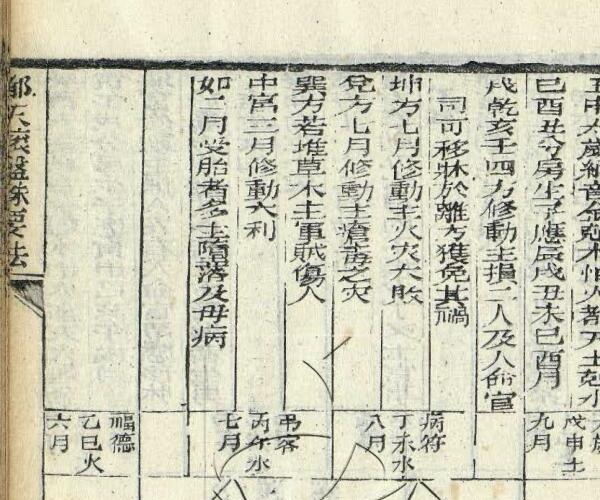 五申太歲納音金剋木怕人都天土剋水
巳酉丑分房生子應辰戌丑未巳酉月
戌乾亥壬四方修動主損二人及人命官
司可移牀於離方獲免其禍
坤方七月修動主火灾大敗
兌方七月修動主瘡毒之灾
巽方若堆草木主軍賊傷人
中宫三月修動大利
如二月受胎者多主墮落及母病
戊申土
九月
病符
丁未水
八月
弔客
丙午水
七月
福德
乙巳火
六月